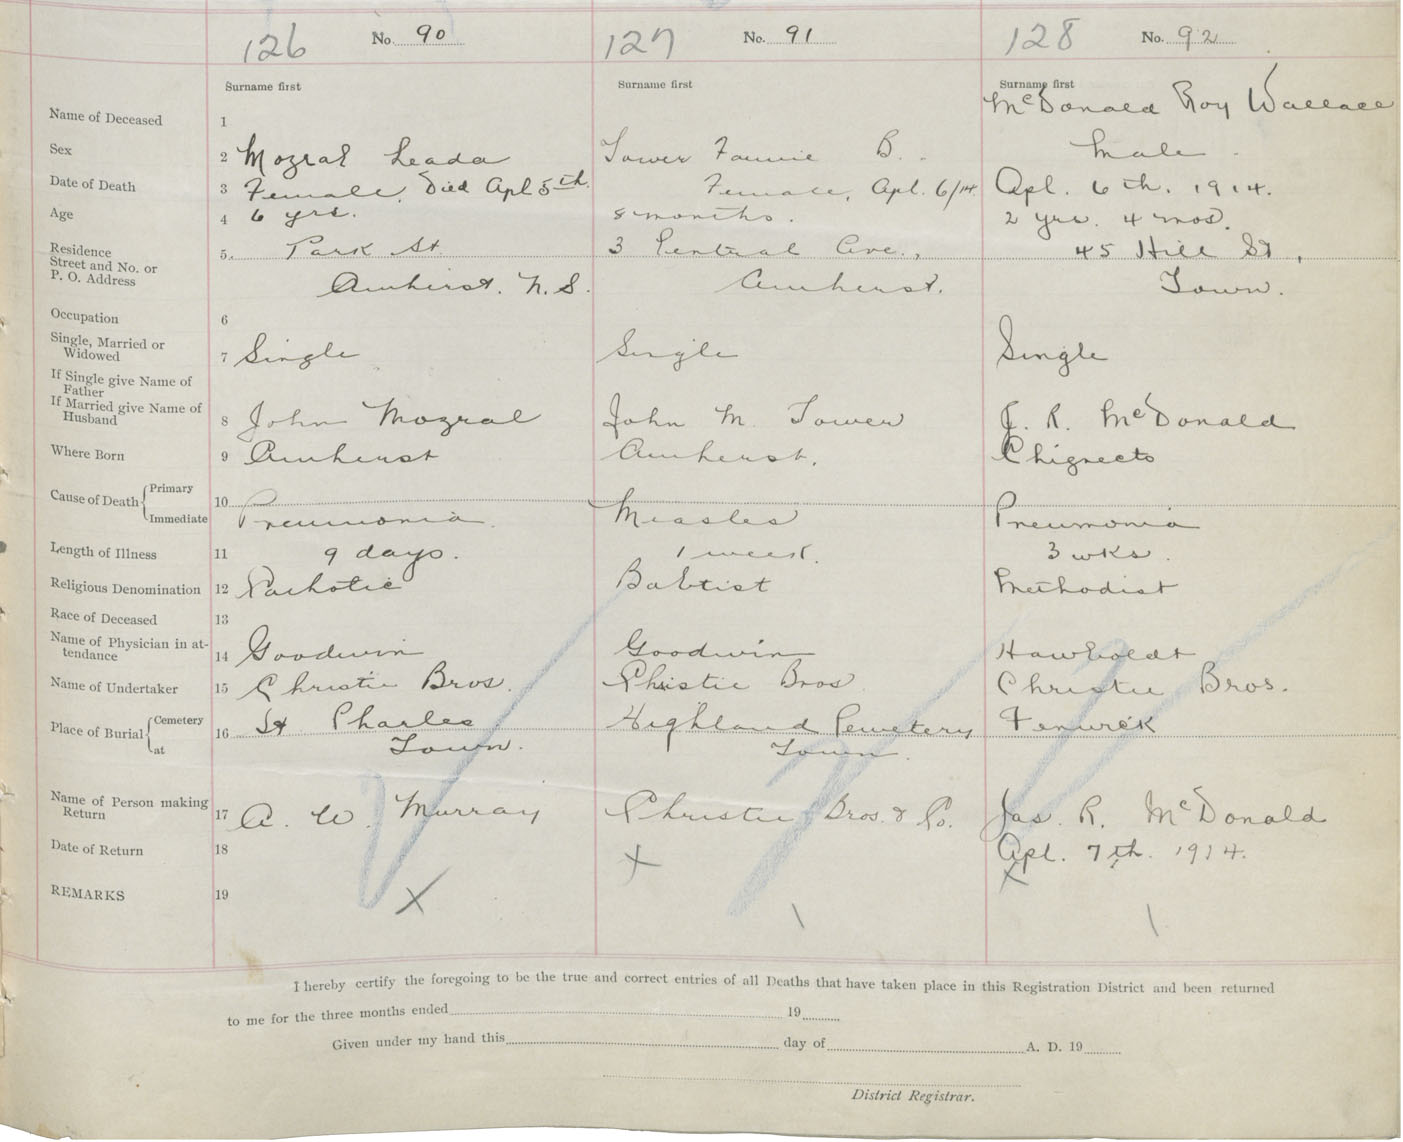 126 No. 90 127 No. 91 128 No. 92
Surname first Surname first Surname first
Name of Deceased 1 McDonald Roy Wallace
Sex 2 Mozral Leada Tower Fannie B. Male
Date of Death 3 Female, Died Apl 5th. Female, Apl. 6/14 Apl. 6th. 1914.
Age 4 6 yrs. 8 months. 2 yrs. 4 mos.
Residence 5. Park St. 3 Central Ave., 45 Hill St,
Street and No. or
P. O. Address Amherst. N.S. Amherst. Town.
Occupation 6
Single, Married or
Widowed 7 Single Single Single
If Single give Name of
Father
If Married give Name of
Husband 8 John Mozral John M. Tower J. R. McDonald
Where Born 9 Amherst Amherst. Chignecto
Cause of Death { Primary 10
Immediate Pneumonia. Measles Pneumonia
Length of Illness 11 9 days. 1 week. 3 wks.
Religious Denomination 12 Cathotic Babtist Methodist
Race of Deceased 13
Name of Physician in at-
tendance 14 Goodwin Goodwin
Name of Undertaker 15 Christie Bros. Christie Bros Christie Bros.
Place of Burial { Cemetery 16 St Charles Highland Cemetery Fenwick
at Town. Town.
Name of Person making
Return 17 A. W. Murray Christie Bros. & Co. Jas. R. McDonald
Date of Return 18 x Apl. 7th. 1914.
x
REMARKS 19 x
I hereby certify the foregoing to be the true and correct entries of all Deaths that have taken place in this Registration District and been returned
to me for the three months ended 19
Given under my hand this day of A. D. 19
District Registrar.